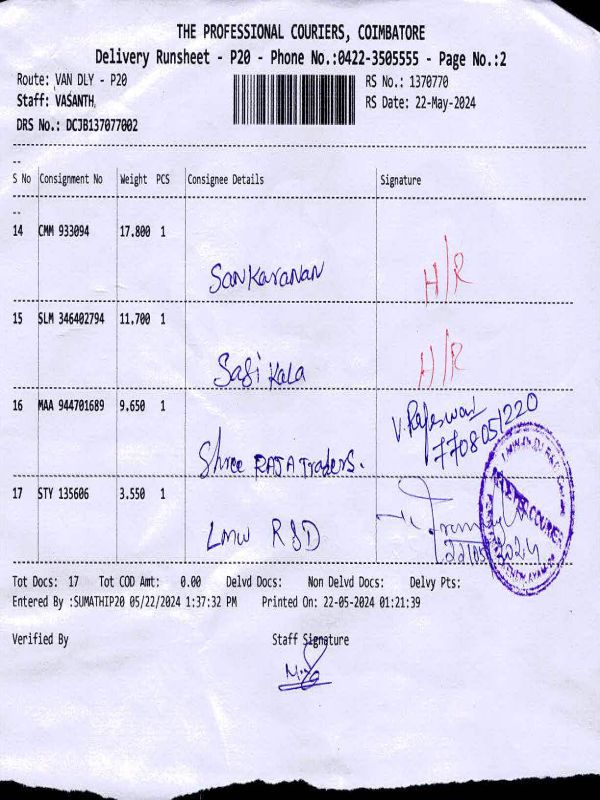 THE PROFESSIONAL COURIERS, COIMBATORE
Delivery Runsheet - P20 - Phone No.:0422-3505555 - Page No.:2
Route: VAN DLY - P20 RS No.: 1370770
Staff: VASANTH, RS Date: 22-May-2024
DRS No.: DCJB137077002
S No Consignment No Weight PCS Consignee Details Signature
14 CMM 933094 17.800 1
Sankaranan H/R
15 SLM 346402794 11.700 1
Sasi kala H/R
16 MAA 944701689 9.650 1
V. Rajeswari
7708051220
Shree RAJA Traders.
17 STY 135606 3.550 1
LMW R&D
22/05/2024
Tot Docs: 17 Tot COD Amt: 0.00 Delvd Docs: Non Delvd Docs: Delvy Pts:
Entered By :SUMATHIP20 05/22/2024 1:37:32 PM Printed On: 22-05-2024 01:21:39
Verified By Staff Signature